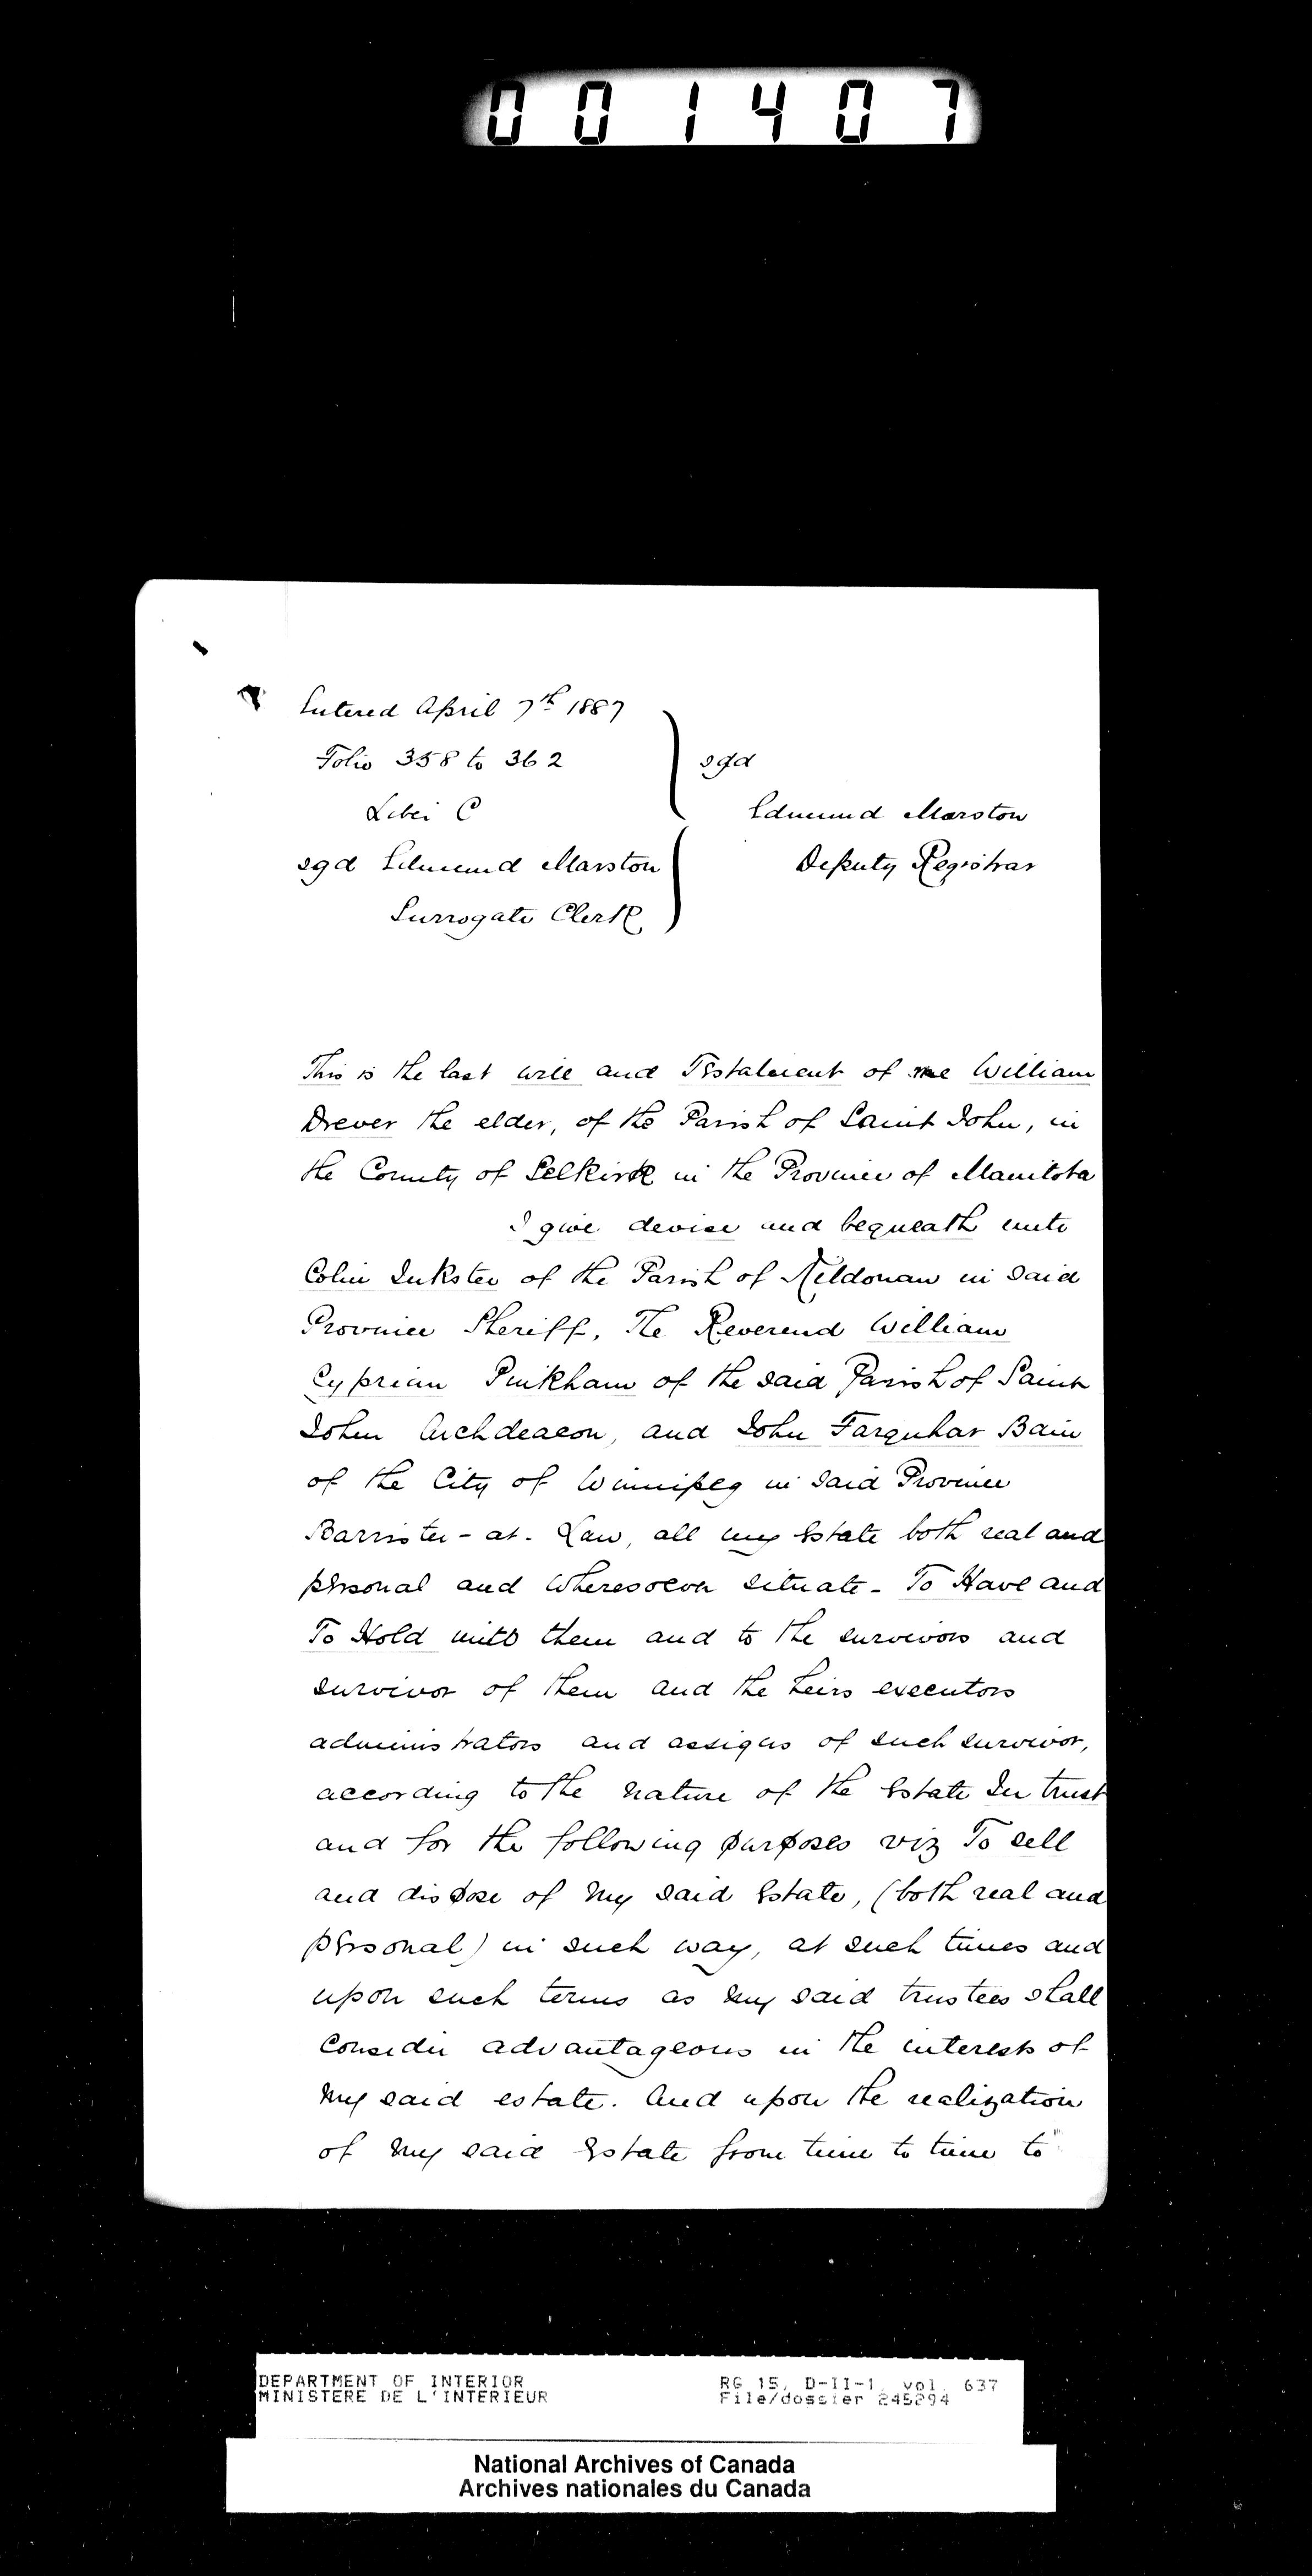 001407
Entered April 7th 1887
Folio 358 to 362
sgd
Liber C
Edmund Marston
sgd Edmund Marston
Deputy Registrar
Surrogate Clerk
This is the last will and Testament of me William
Drever the elder, of the Parish of Saint John, in
the County of Selkirk in the Province of Manitoba
I give devise and bequeath unto
Colin Inkster of the Parish of Kildonan in said
Province Sheriff, The Reverend William
Cyprian Pinkham of the said Parish of Saint
John Archdeacon, and John Farquhar Bain
of the City of Winnipeg in said Province
Barrister-at-Law, all my Estate both real and
personal and wheresoever situate - To Have and
To Hold unto them and to the survivors and
survivor of them and the heirs executors
administrators and assigns of such survivor,
according to the nature of the Estate In trust
and for the following purposes viz To sell
and dispose of my said Estate, (both real and
personal) in such way, at such times and
upon such terms as my said trustees shall
consider advantageous in the interests of
my said estate. And upon the realization
of my said Estate from time to time to
DEPARTMENT OF INTERIOR
MINISTERE DE L'INTERIEUR
RG 15, D-II-1, vol. 637
File/dossier 245294
National Archives of Canada
Archives nationales du Canada